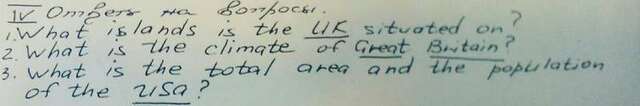 IV Ответь на вопросы.
1. What islands is the UK situated on?
2. What is the climate of Great Britain?
3. What is the total area and the population
of the USa?